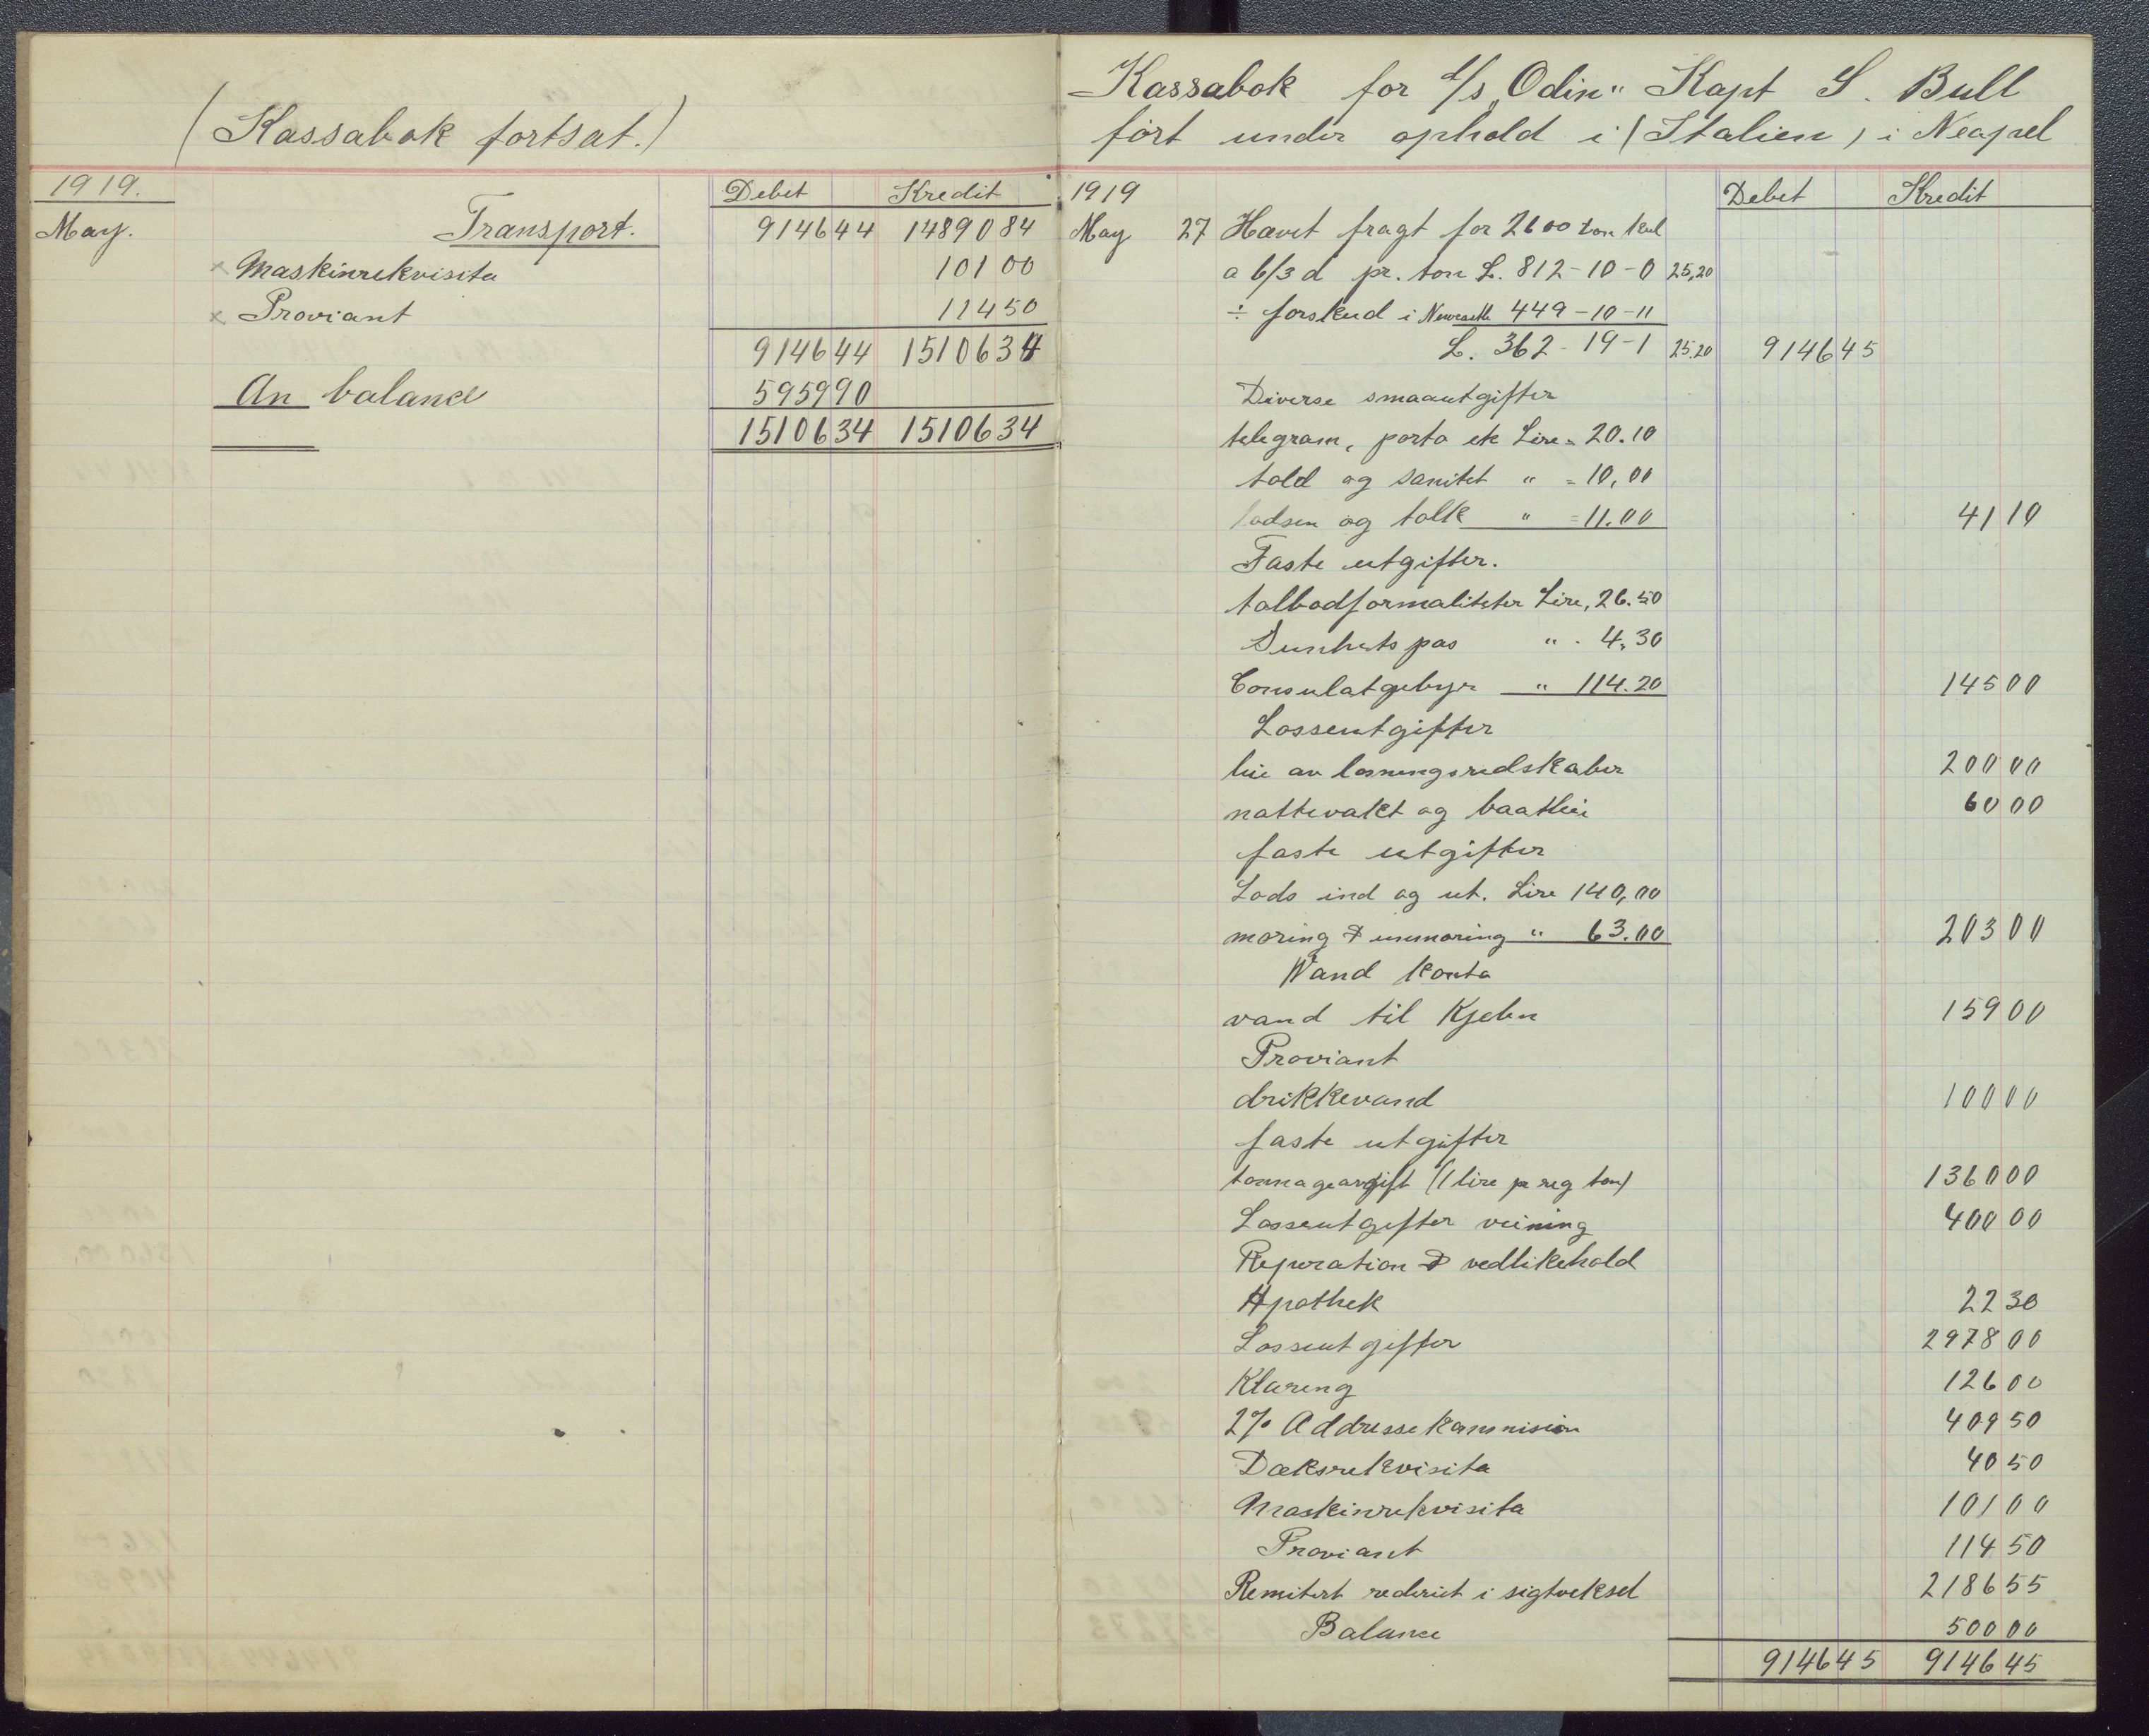 (Kassabok fortsat.)
1919. Debet Kredit
May. Transport. 9146 44 14890 84
x Maskinrekvisita 101 00
x Proviant 114 50
9146 44 15106 34
An balance 5959 90
15106 34 15106 34
Kassabok for d/s „Odin" Kapt S. Bull
fört under ophold i (Italien) i Neapel
1919 Debet Kredit
May 27 Hævet fragt for 2600 ton kul
a 6/3 d pr. ton L. 812-10-0 25,20
÷ forskud i Newcastle 449-10-11
L. 362-19-1 25.20 9146 45
Diverse smaautgifter
telegram, porto etc Lire = 20.10
told og sanitet " = 10,00
lodsen og tolk " = 11.00 41 10
Faste utgifter.
tolbodformaliteter Lire, 26.50
Sunhetspas " . 4.30
Consulatgebyr " 114.20 145 00
Losseutgifter
leie av losningsredskaber 200 00
nattevakt og baatleie 60 00
faste utgifter
Lods ind og ut. Lire 140,00
moring & unmoring " 63.00 203 00
Vand konto
vand til Kjelen 159 00
Proviant
drikkevand 100 00
faste utgifter
tonnageavgift (1 lire pr reg ton) 1360 00
Losseutgifter veining 400 00
Reperation & vedlikehold
Apothek 22 30
Losseutgifter 2978 00
Klarering 126 00
2% Addressekommision 409 50
Dæksrekvisita 40 50
Maskinrekvisita 101 00
Proviant 114 50
Remitert rederiet i sigtveksel 2186 55
Balance 500 00
9146 45 9146 45